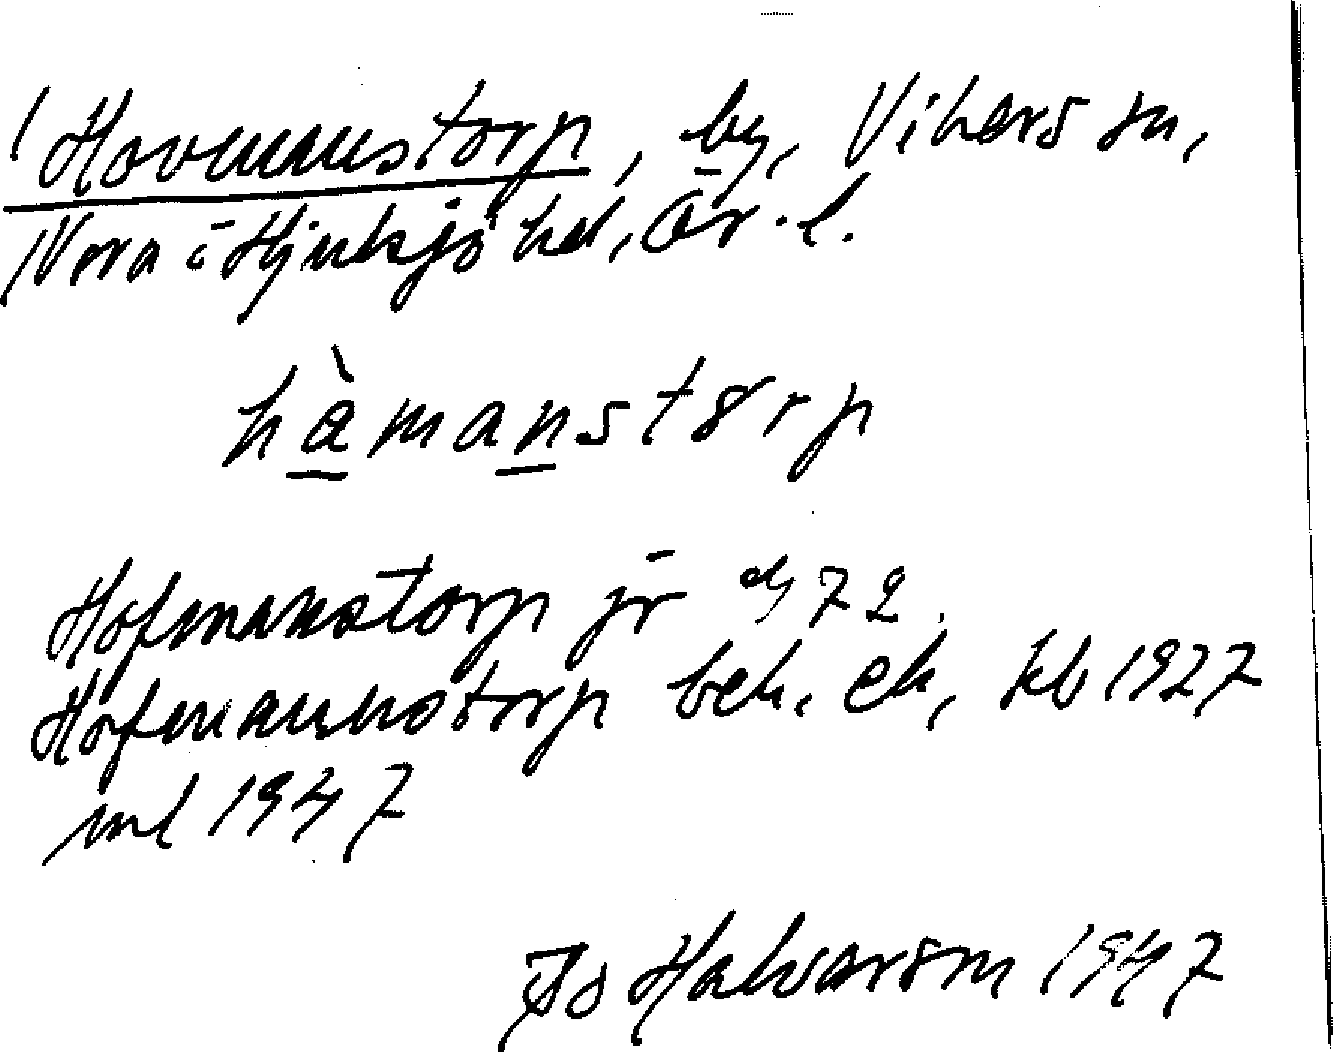 Hovmanstorp, by, Vikers sn,
Nora o Hjulsjö hd, Ör. l.
hàmanstorp
Hofmanstorp jr 72
Hofmanstorp bek. ek, kb 1927
ml 1947
Halvarson 1947